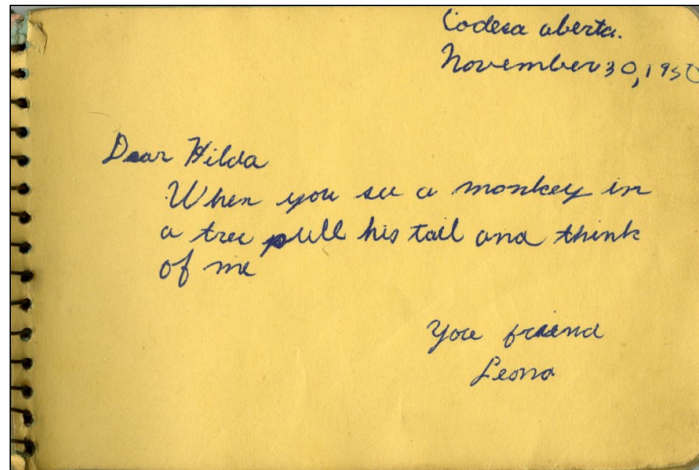 Codesa aberta.
November 30, 1950
Dear Hilda
When you see a monkey in
a tree pull his tail and think
of me
Your friend
Leona